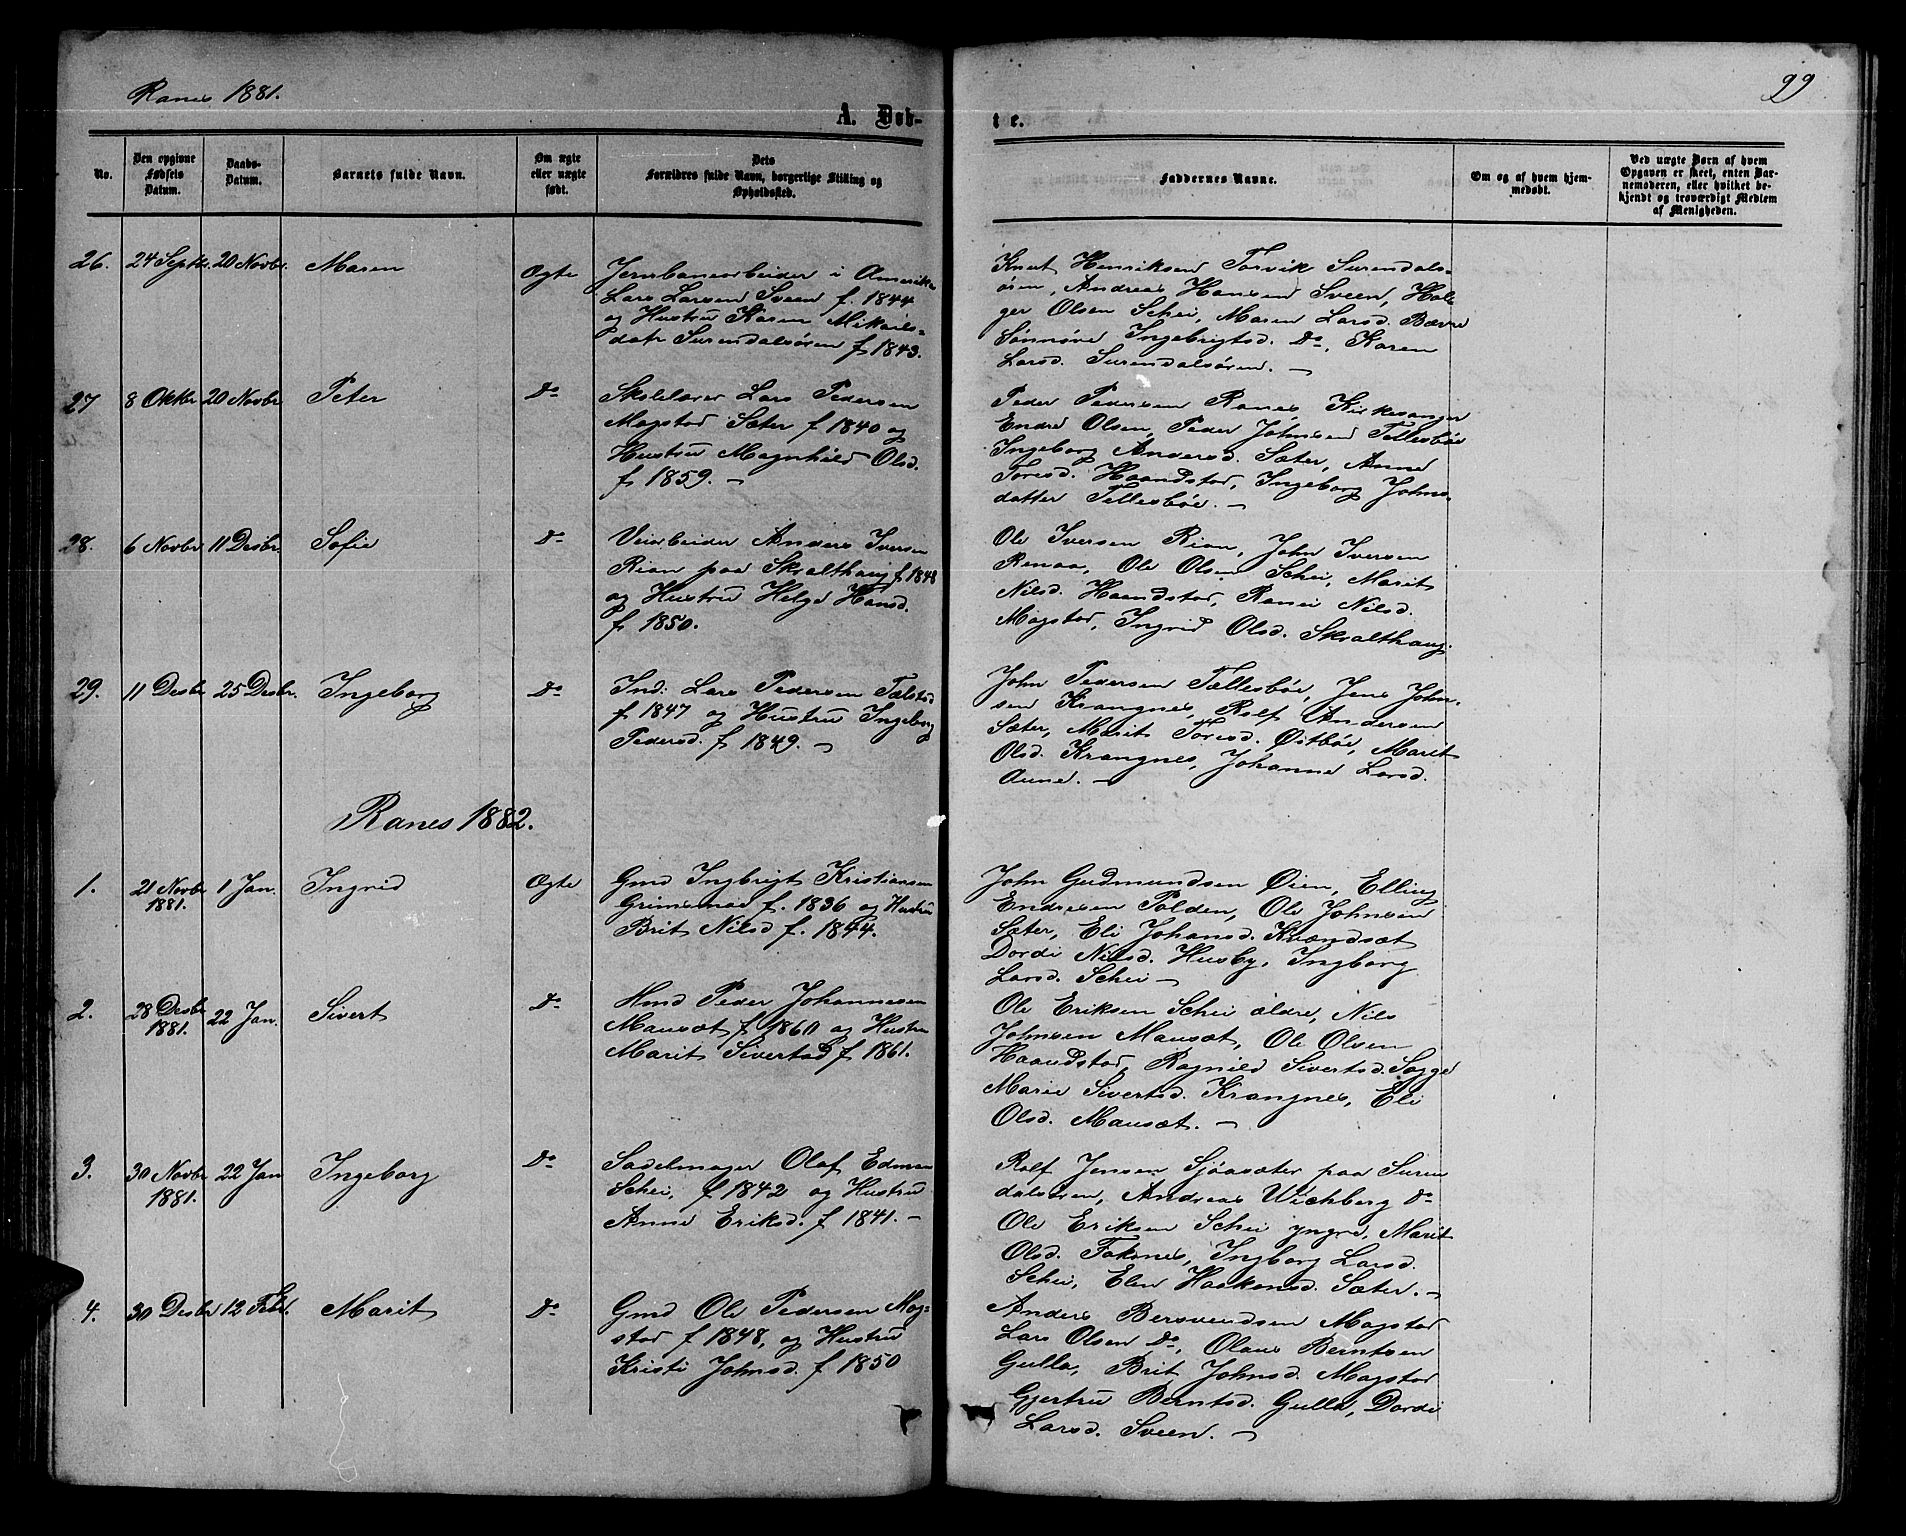 Ranes 1881.
99
A. Døb-
te.
No.
Den opgivne Fødsels Datum.
Daabs-Datum.
Barnets fulde Navn.
Om ægte eller uægte født.
Dets Forældres fulde Navn, borgerlige Stilling og Opholdssted.
Faddernes Navne.
Om og af hvem hjemmedøbt.
Ved uægte Børn af hvem
Opgaven er skeet, enten Bar-
nemoderen, eller hvilket be-
kjendt og troværdigt Medlem
af Menigheden.
26. 24 Septbr. 20 Novbr. Maren Ægte
Jernbanearbeider i Amerika
Lars Larsen Sveen f. 1844
og Hustru Karen Mikaels-
datr Surendalsøren f 1843.
Knut Henriksen Torvik Surendals-
øren, Andreas Hansen Sveen, Hol-
ger Olsen Schei, Maren Larsd. Bævre
Sønnøve Ingebrigtsd. Do, Karen
Larsd. Surendalsøren. —
27 8 Oktbr 20 Novbr Peter Do
Skolelærer Lars Pedersen
Mogstad Sæter f 1840 og
Hustru Magnhild Olsd.
f 1859. —
Peder Pedersen Ranes, Kirkesanger
Endre Olsen, Peder Johnsen Tellesbøe
Ingeborg Andersd. Sæter, Anne
Toresd. Haandstad, Ingeborg Johns-
datter Tellesbøe. —
28. 6 Novbr 11 Desbr. Sofie Do
Veiarbeider Anders Iversen
Rian paa Skralthaug f 1848
og Hustru Helge Hansd.
f 1850.
Ole Iversen Rian, John Iversen
Renaa, Ole Olsen Schei, Marit
Nilsd. Haandstad, Ranei Nilsd.
Mogstad, Ingrid Olsd. Skralthaug.
29. 11 Desbr 25 Desbr. Ingeborg Do
Ind: Lars Pedersen Telstad
f 1847 og Hustru Ingeborg
Pedersd. f 1849. —
John Pedersen Tællesbøe, Jens John-
sen Krangnes, Rolf Andersen
Sæter, Marit Toresd. Østbøe, Marit
Olsd. Krangnes, Johanne Larsd.
Aune. —
Ranes 1882.
1. 21 Novbr 1881. 1 Jan. Ingrid Ægte
Gmd Ingbrigt Kristiansen
Grimsmoe f. 1836 og Hustru
Brit Nilsd f. 1844.
John Gudmundsen Øien, Elling
Endresen Polden, Ole Johnsen
Sæter, Eli Johansd. Kvændsæt
Dordi Nilsd. Husby, Ingborg
Larsd. Schei —
2. 28 Desbr 1881. 22 Jan. Sivert Do
Hmd Peder Johannesen
Mausæt f 1860 og Hustru
Marit Sivertsd f 1861.
Ole Eriksen Schei ældre, Nils
Johnsen Mausæt, Ole Olsen
Haandstad, Ragnild Sivertsd. Sogge
Marie Sivertsd. Krangnes, Eli
Olsd. Mausæt. —
3. 30 Novbr 1881. 22 Jan Ingeborg Do
Sadelmager Olaf Edman
Schei, f 1842 og Hustru
Anne Eriksd. f 1841. —
Rolf Jensen Sjøasæter paa Suren
dalsøren, Andreas Wichberg Do
Ole Eriksen Schei yngre, Marit
Olsd. Foksnes, Ingborg Larsd.
Schei, Elen Haakensd. Sæter. —
4. 30 Desbr 12 Febr. Marit Do
Gmd Ole Pedersen Mog-
stad f 1848, og Hustru
Kristi Johnsd. f 1850
Anders Bersvendsen Mogstad
Lars Olsen Do, Olaus Berntsen
Gulla, Brit Johnsd. Mogstad
Gjertru Berntsd. Gulla, Dordi
Larsd. Sveen. —